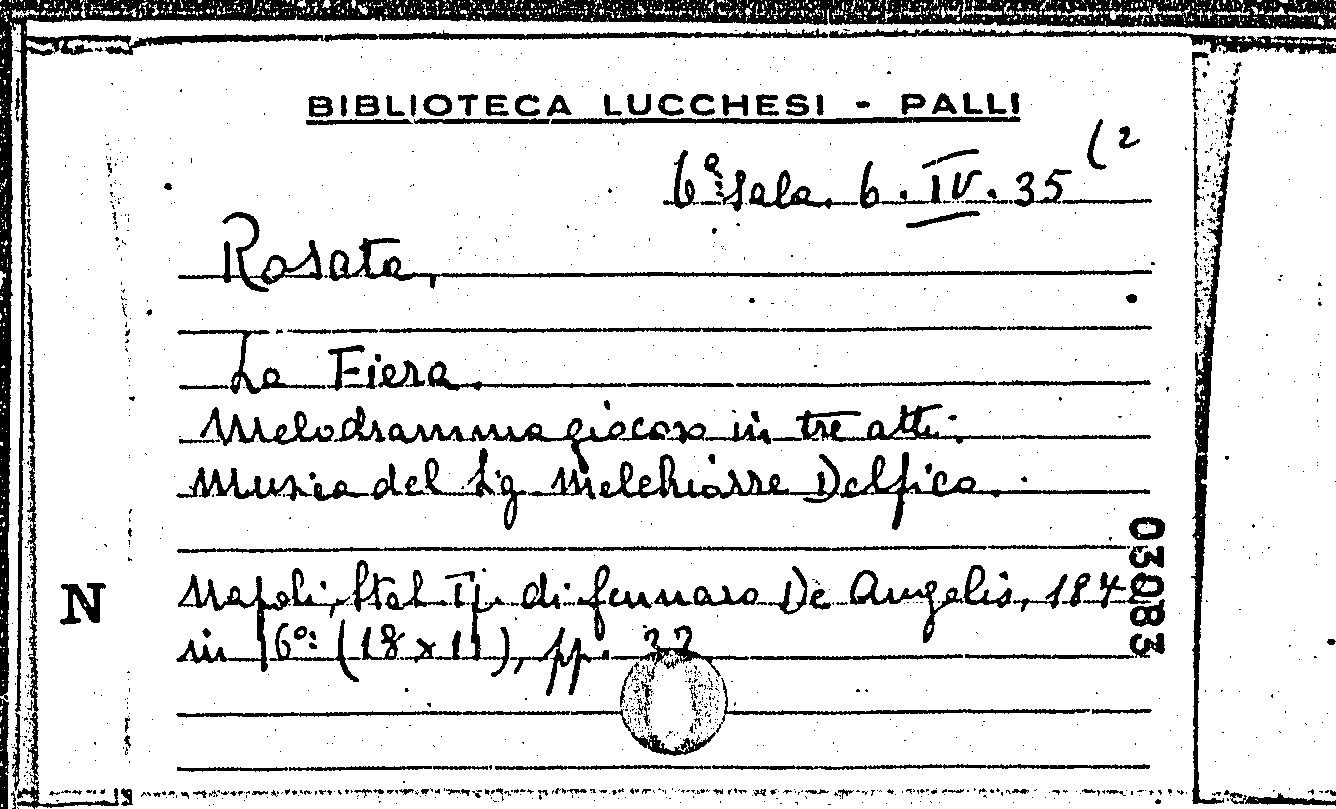 BIBLIOTECA LUCCHESI - PALLI
6ª sala. 6. IV. 35 (2
Rosata,
La Fiera.
Melodramma giocoso in tre atti.
Musica del Sig Melchiorre Delfico.
Napoli, Stab Tip. di Gennaro De Angelis, 184
in 16°: (18 x 11), pp. 32
N
03083